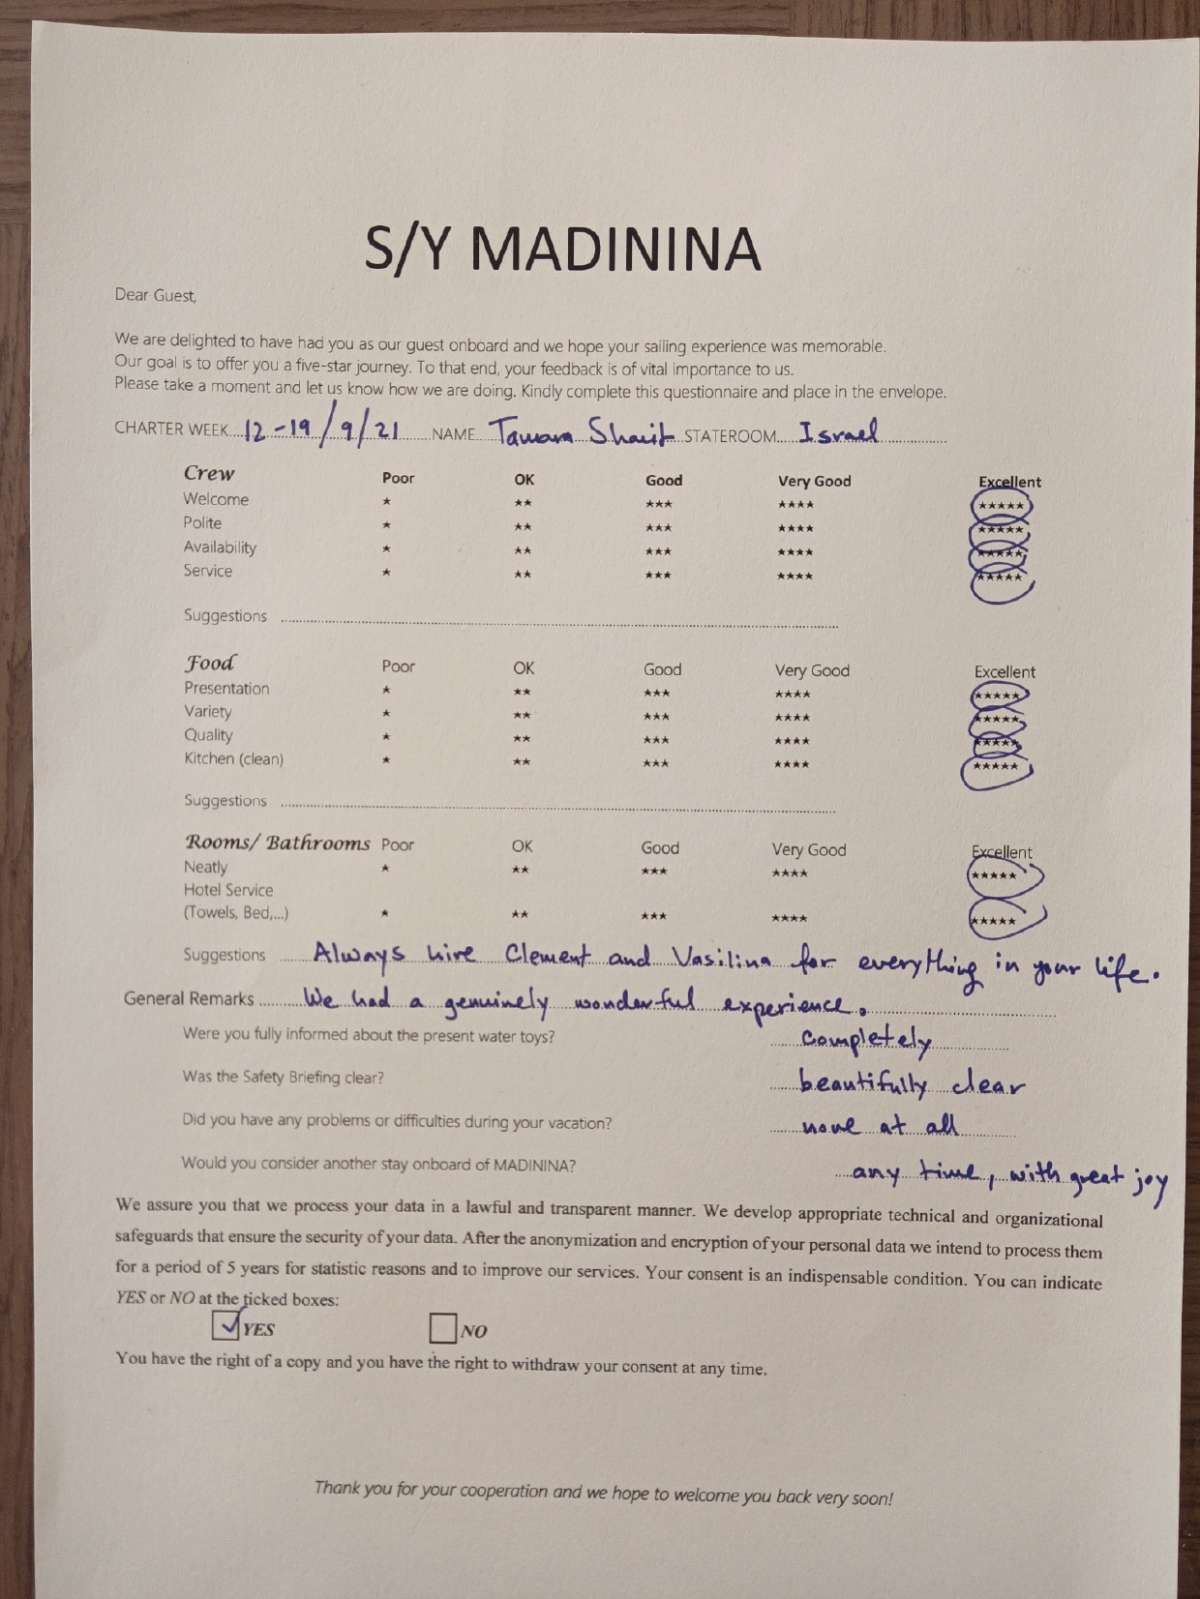 S/Y MADININA
Dear Guest,
We are delighted to have had you as our guest onboard and we hope your sailing experience was memorable.
Our goal is to offer you a five-star journey. To that end, your feedback is of vital importance to us.
Please take a moment and let us know how we are doing. Kindly complete this questionnaire and place in the envelope.
CHARTER WEEK 12-19/9/21 NAME STATEROOM Israel
Crew Poor OK Good Very Good Excellent
Welcome ★ ★★ ★★★ ★★★★ ★★★★★
Polite ★ ★★ ★★★ ★★★★ ★★★★★
Availability ★ ★★ ★★★ ★★★★ ★★★★★
Service ★ ★★ ★★★ ★★★★ ★★★★★
Suggestions
Food Poor OK Good Very Good Excellent
Presentation ★ ★★ ★★★ ★★★★ ★★★★★
Variety ★ ★★ ★★★ ★★★★ ★★★★★
Quality ★ ★★ ★★★ ★★★★ ★★★★★
Kitchen (clean) ★ ★★ ★★★ ★★★★ ★★★★★
Suggestions
Rooms/ Bathrooms Poor OK Good Very Good Excellent
Neatly ★ ★★ ★★★ ★★★★ ★★★★★
Hotel Service
(Towels, Bed,...) ★ ★★ ★★★ ★★★★ ★★★★★
Suggestions Always hire Clement and Vasilina for everything in your life.
General Remarks We had a genuinely wonderful experience.
Were you fully informed about the present water toys? completely
Was the Safety Briefing clear? beautifully clear
Did you have any problems or difficulties during your vacation? none at all
Would you consider another stay onboard of MADININA? any time, with great joy
We assure you that we process your data in a lawful and transparent manner. We develop appropriate technical and organizational
safeguards that ensure the security of your data. After the anonymization and encryption of your personal data we intend to process them
for a period of 5 years for statistic reasons and to improve our services. Your consent is an indispensable condition. You can indicate
YES or NO at the ticked boxes:
YES NO
You have the right of a copy and you have the right to withdraw your consent at any time.
Thank you for your cooperation and we hope to welcome you back very soon!